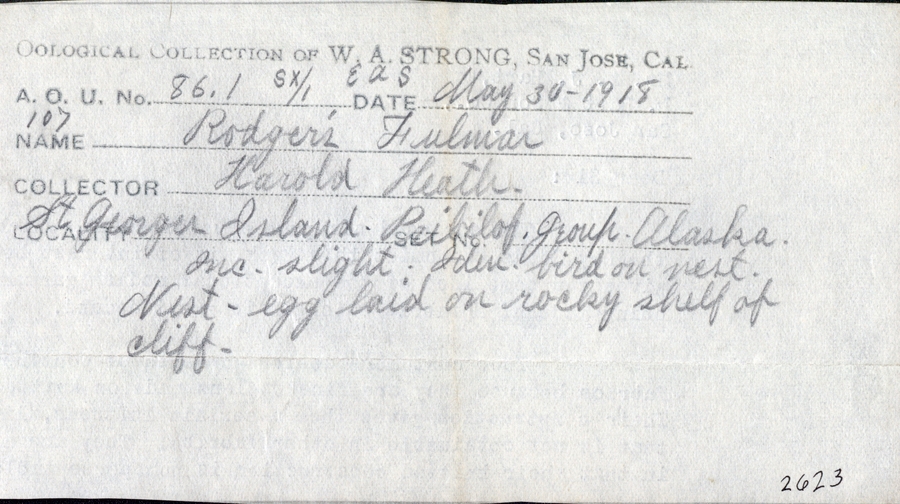 OOLOGICAL COLLECTION OF W. A. STRONG, SAN JOSE, CAL
A. O. U. No. 86.1 SX/1 E a S DATE May 30-1918
107
NAME Rodger's Fulmar
COLLECTOR Harold Heath-
LOCALITY St Georges Island. SET No. Pribilof. group. Alaska.
Inc. slight. Iden. bird on nest.
Nest - egg laid on rocky shelf of
cliff-
2623